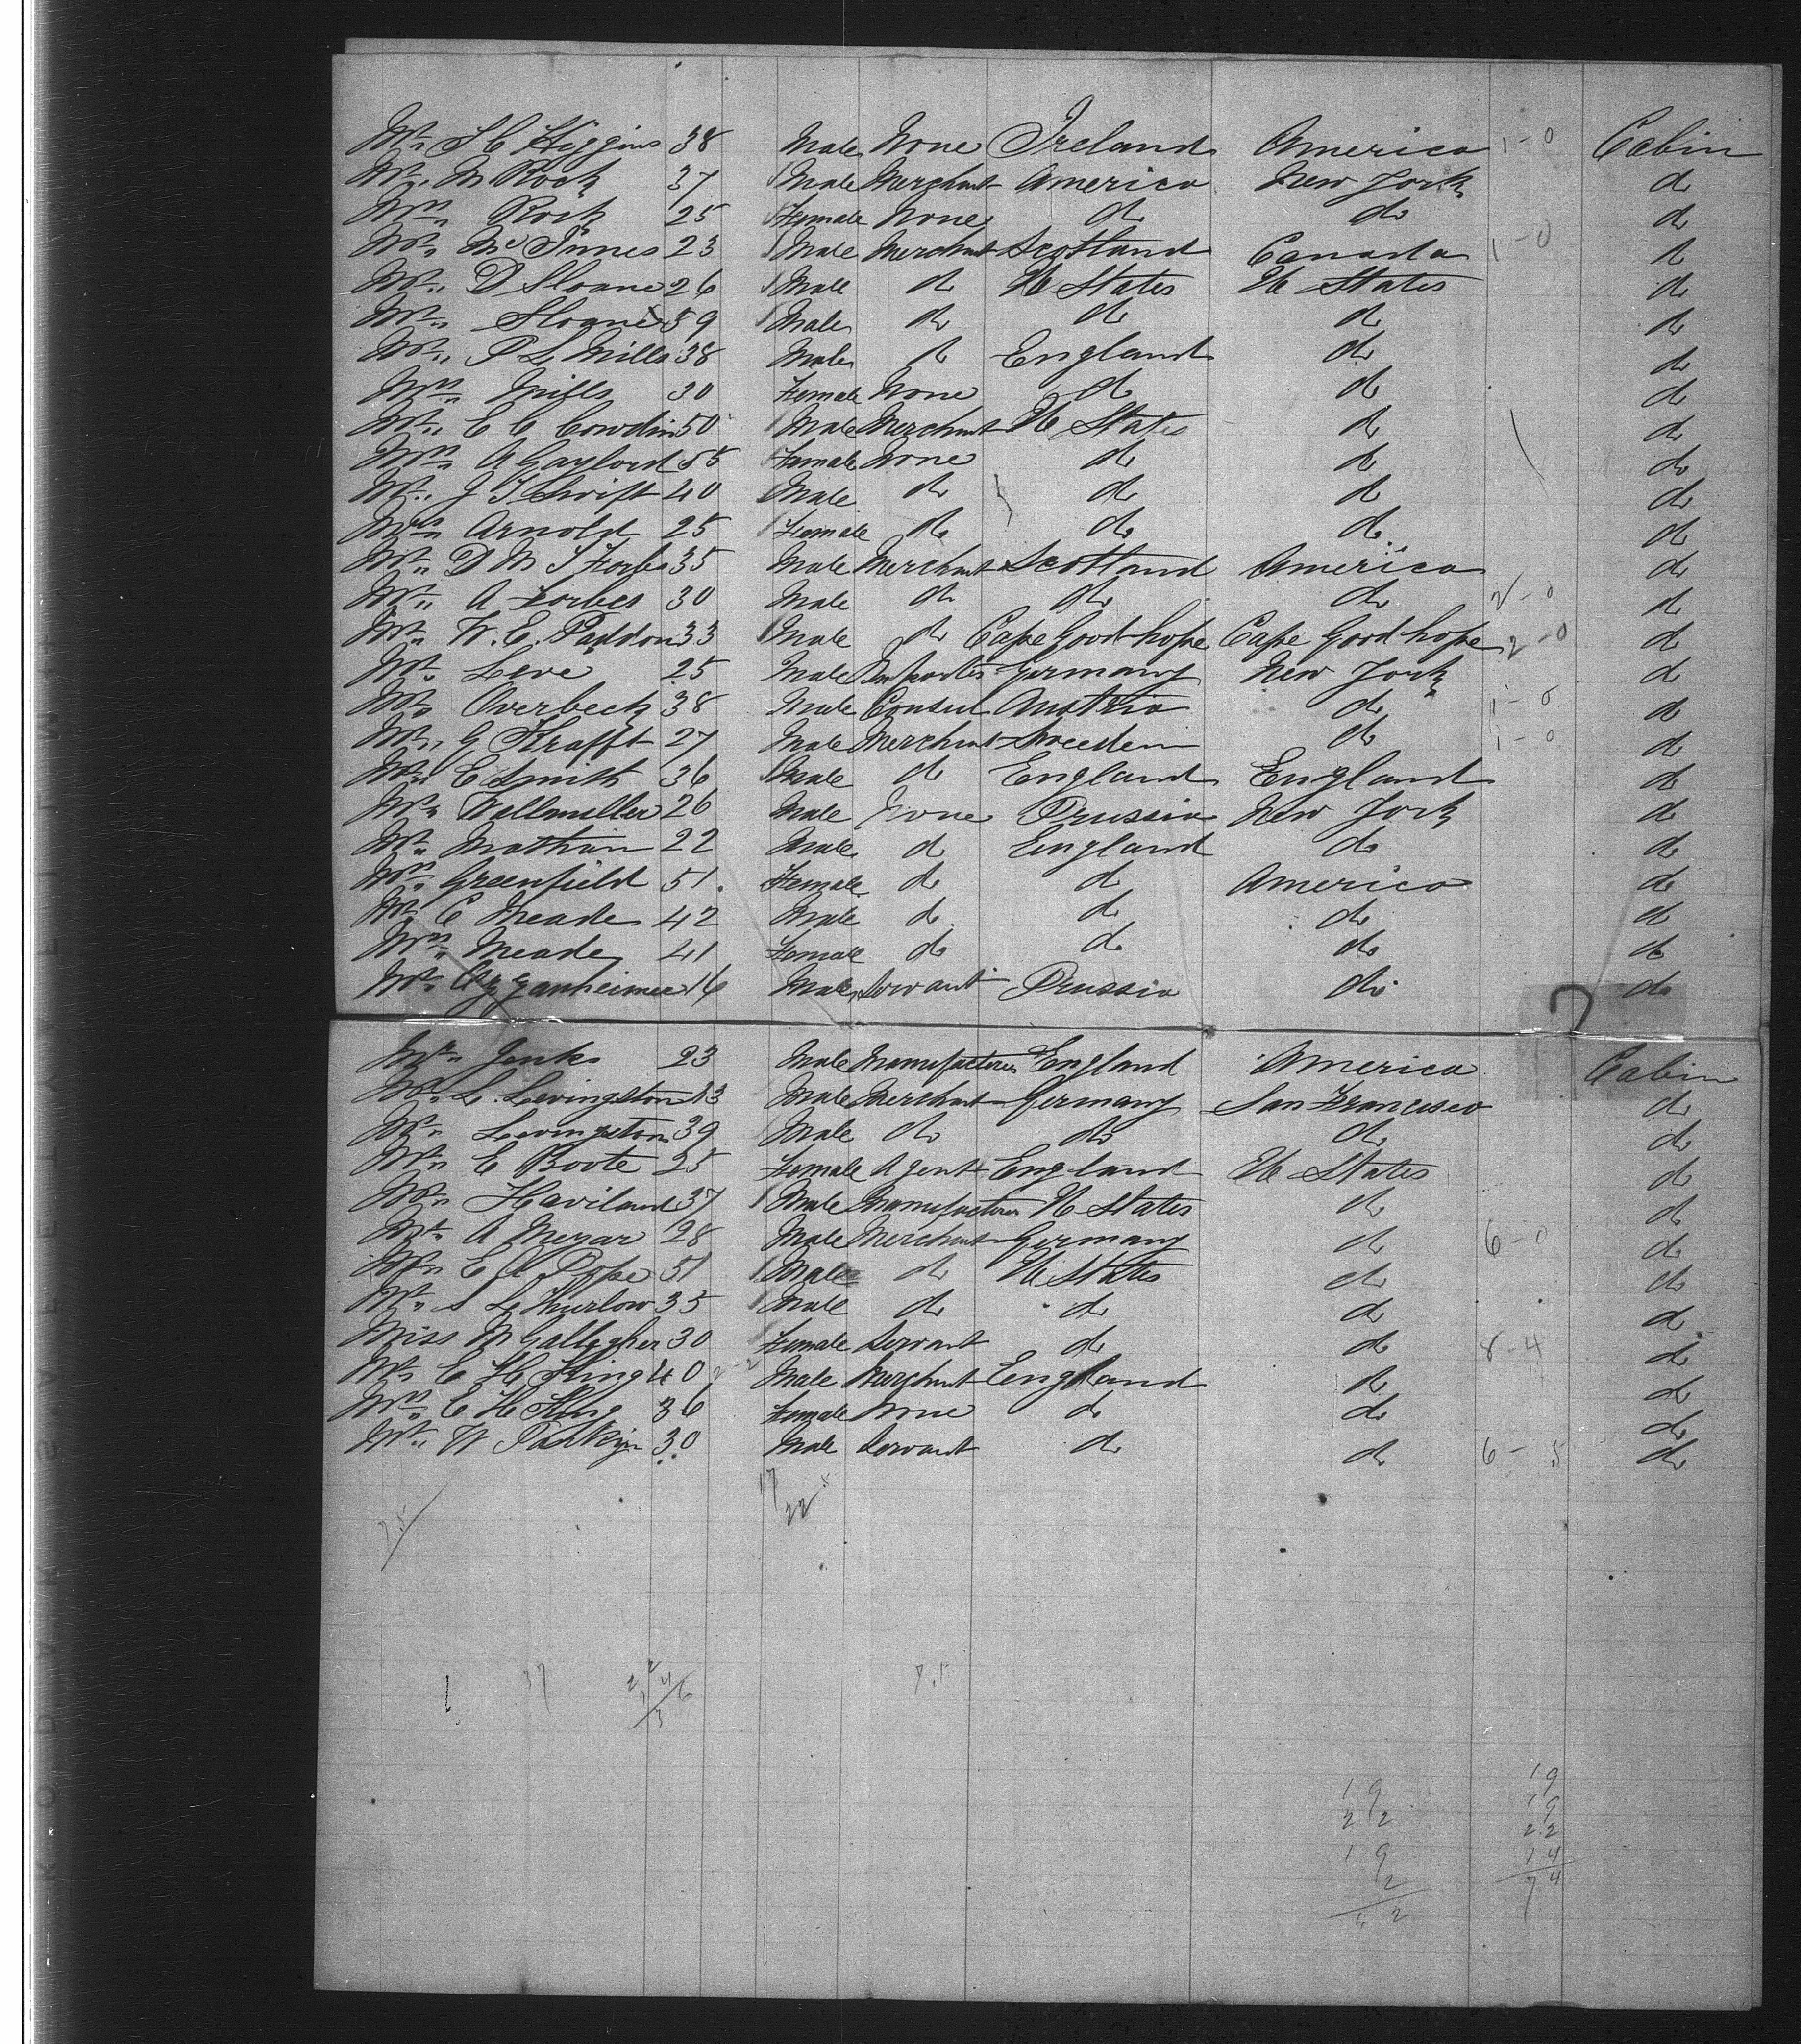 Mr. H C Higgins 38 Male None Ireland America 1-0 Cabin
Mr. M Rock 37 Male Merchant America New York do
Mrs. Rock 25 Female None do do do
Mr. McInnes 23 Male Merchant Scotland Canada 1-0 do
Mr. D Sloane 26 Male do U States U States do
Mr. Sloane 59 Male do do do do
Mr. P L Mills 38 Male do England do do
Mrs. Mills 30 Female None do do do
Mr. E C Cowdin 50 Male Merchant U States do do
Mrs. A Gaylord 55 Female None do do do
Mr. J T Swift 40 Male do do do do
Mrs. Arnold 25 Female do do do do
Mr. D M S Forbes 35 Male Merchant Scotland America do
Mr. A Forbes 30 Male do do do 2-0 do
Mr. W. E. Paddon 33 Male do Cape Good hope Cape Good hope 2-0 do
Mr. Leve 25 Male Importer Germany New York do
Mr. Overbeck 38 Male Consul Austria do 1-0 do
Mr. G Krafft 27 Male Merchant Sweden do 1-0 do
Mr. C Smith 36 Male do England England do
Mr. Wallmuller 26 Male None Prussia New York do
Mr. Mathim 22 Male do England do do
Mrs. Greenfield 51 Female do do America do
Mr. C Meade 42 Male do do do do
Mrs. Meade 41 Female do do do do
Mr. 16 Male Servant Prussia do do
Mr. Jenks 23 Male Manufacturer England America Cabin
Mr. L. Levingston 43 Male Merchant Germany San Francisco do
Mr. Levingston 39 Male do do do do
Mr. E Boote 25 Female Agent England U States do
Mr. Haviland 37 Male Manufacturer U States do do
Mr. A Meyar 28 Male Merchant Germany do 6-0 do
Mr. E A Pope 51 Male do U States do do
Mr. S L Thurlow 35 Male do do do do
Miss M Gallegher 30 Female Servant do do 8-4 do
Mr. E H King 40 Male Merchant England do do
Mrs. E H King 36 Female None do do do
Mr. W Parkyn 30 Male Servant do do 6-5 do
17
22
75
37
19 19
22 19
19 22
2 14
74